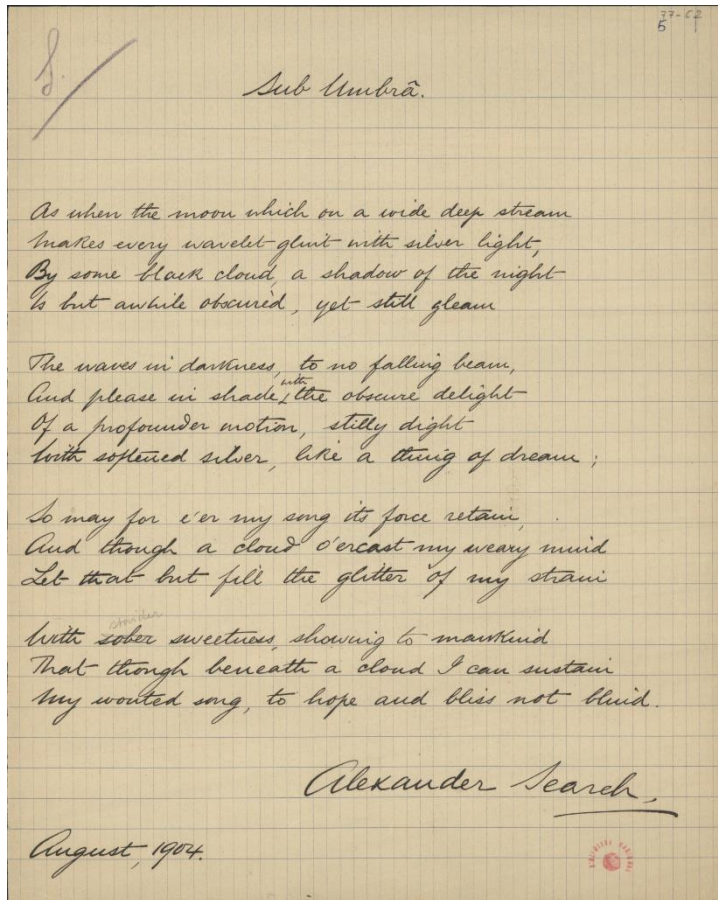 77-62
5
S.
Sub Umbrâ.
As when the moon which on a wide deep stream
Makes every wavelet glint with silver light,
By some black cloud, a shadow of the night
Is but awhile obscurèd, yet still gleam
The waves in darkness, to no falling beam,
And please in shade, with the obscure delight
Of a profounder motion, stilly dight
With softened silver, like a thing of dream;
So may for e'er my song its force retain,
And though a cloud o'ercast my weary mind
Let that but fill the glitter of my strain
With sober sweetness, showing to mankind
That though beneath a cloud I can sustain
My wonted song, to hope and bliss not blind.
Alexander Search.
August, 1904.